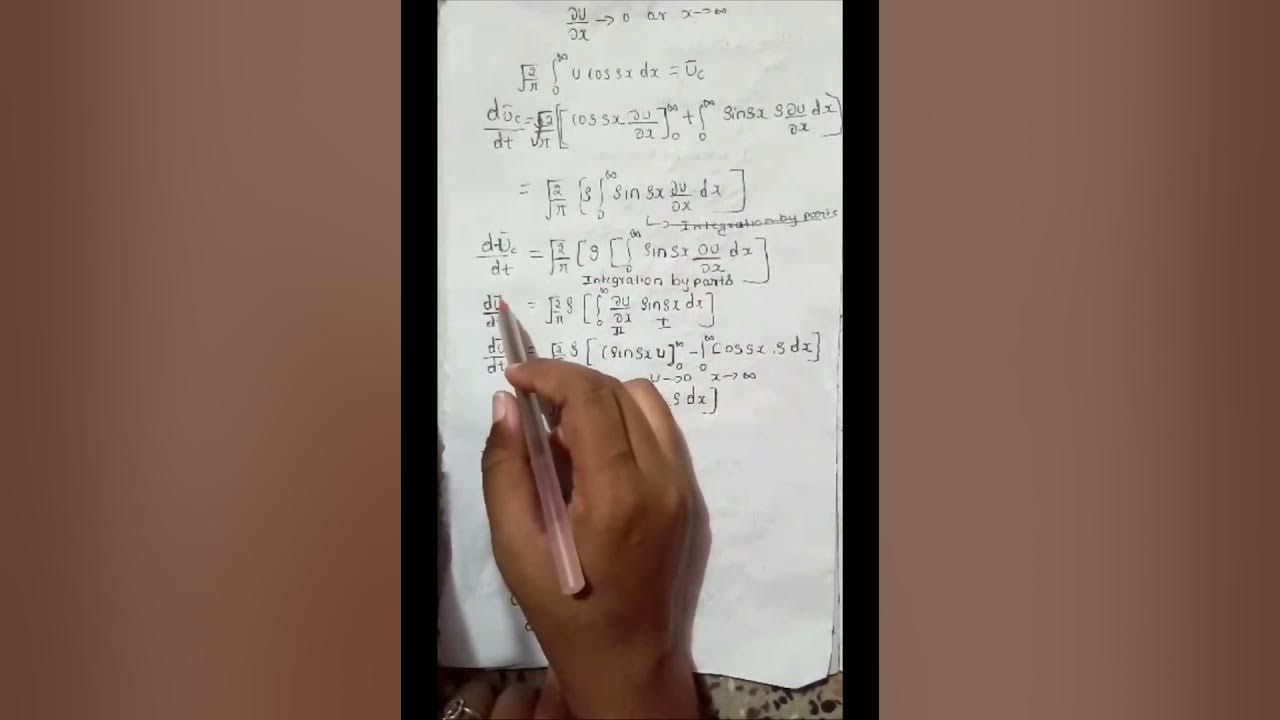 ∂U/∂x → 0 as x → ∞
√(2/π) ∫₀^∞ U cos sx dx = Ūc
dŪc/dt = √(2/π) [[cos sx ∂U/∂x]₀^∞ + ∫₀^∞ sin sx s ∂U/∂x dx]
= √(2/π) [s ∫₀^∞ sin sx ∂U/∂x dx]
↳ Integration by parts
dŪc/dt = √(2/π) [s [∫₀^∞ sin sx ∂U/∂x dx]
Integration by parts
dŪ = √(2/π) s [∫₀^∞ ∂U/∂x sin sx dx]
II I
dŪ = √(2/π) s [(sin sx U]₀^∞ - ∫₀^∞ cos sx . s dx]
U → 0 x → ∞
s dx]